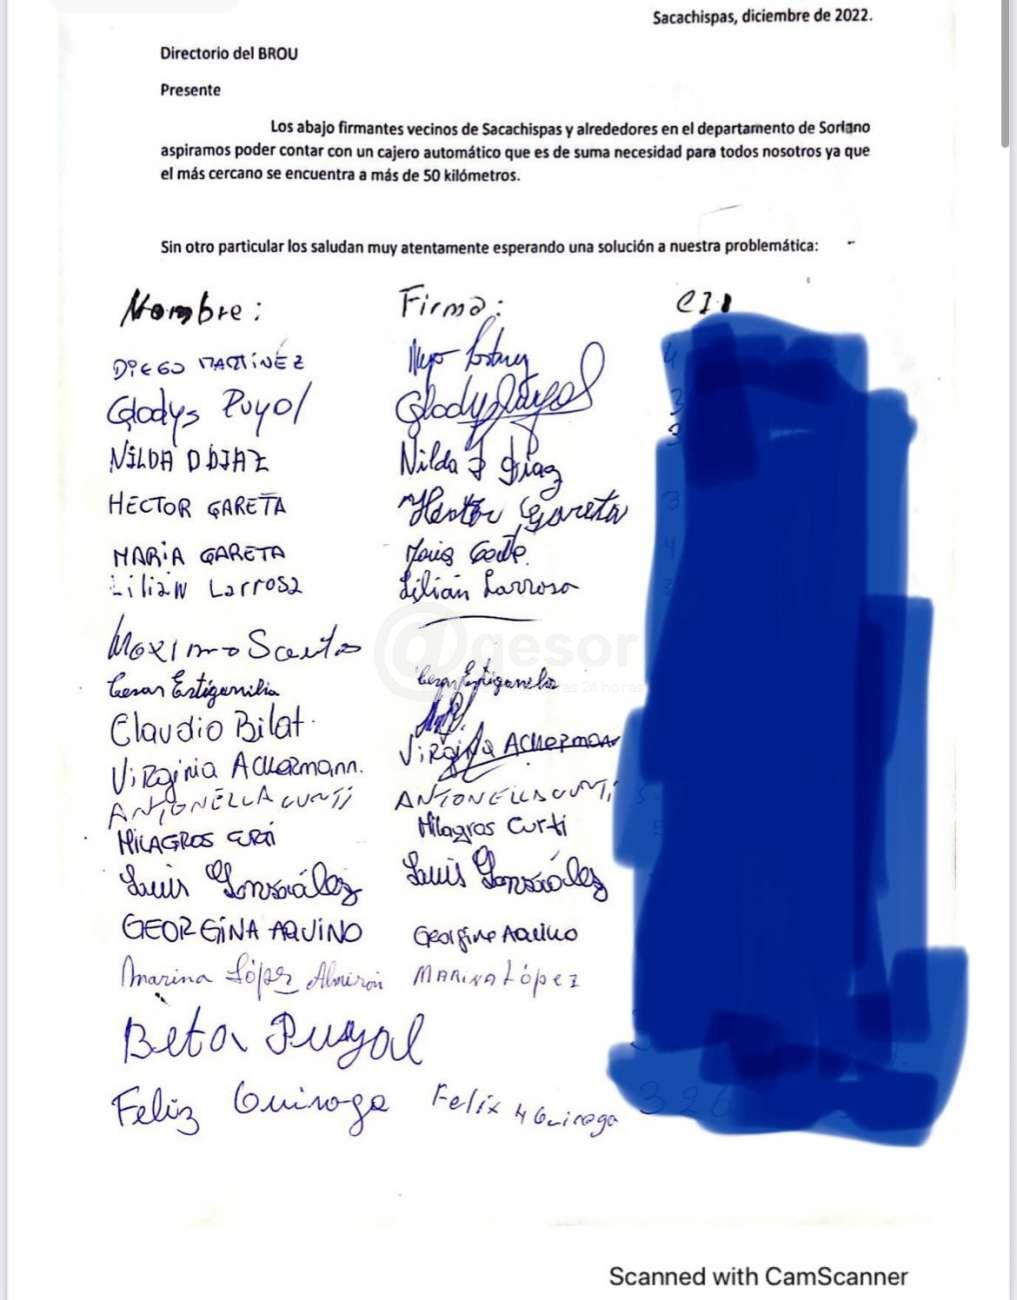 Sacachispas, diciembre de 2022.
Directorio del BROU
Presente
Los abajo firmantes vecinos de Sacachispas y alrededores en el departamento de Soriano
aspiramos poder contar con un cajero automático que es de suma necesidad para todos nosotros ya que
el más cercano se encuentra a más de 50 kilómetros.
Sin otro particular los saludan muy atentamente esperando una solución a nuestra problemática:
Nombre: Firma: CI
DIEGO MARTINEZ
Gladys Puyol Gladys Puyol
NILDA DÍAZ Nilda Díaz
HECTOR GARETA Hector Gareta
MARIA GARETA
Lilian Larrosa Lilián Larrosa
Maximo
Cesar Estigarribia
Claudio Bilat.
Virginia Ackermann. Virginia Ackermann
ANTONELLA CURTI ANTONELLA CURTI
MILAGROS CURTI Milagros Curti
Luis González Luis González
GEORGINA AQUINO Georgina Aquino
Marina López Almirón MARINA López
@gesor
24 horas
Beta Puyol
Feliz Quiroga Felix Quiroga
Scanned with CamScanner